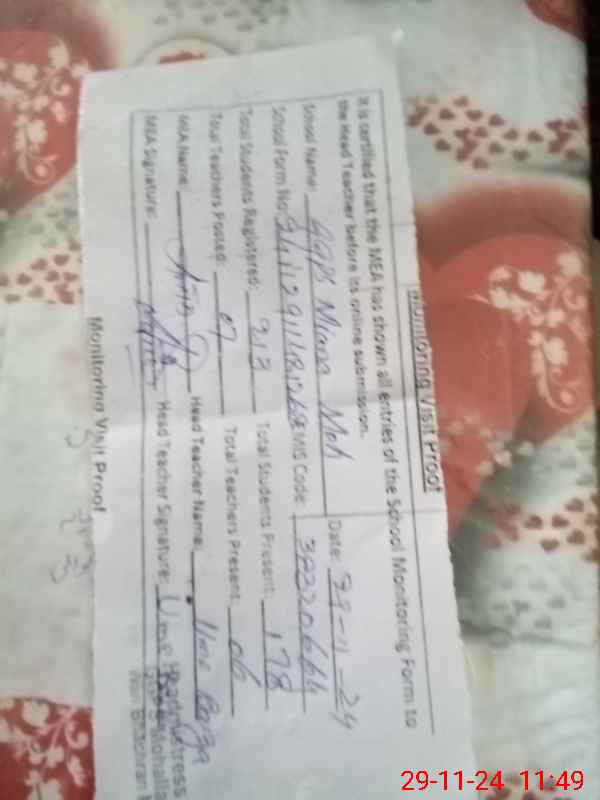 Monitoring Visit Proof
It is certified that the MEA has shown all entries of the School Monitoring Form to
the Head Teacher before its online submission.
School Name: GGPS Miana Moh Date: 29-11-24
School Form No: EMIS Code: 38320664
Total Students Registered: 213 Total Students Present: 178
Total Teachers Posted: 07 Total Teachers Present: 06
MEA Name: Head Teacher Name: Ume
MEA Signature: Head Teacher Signature: Ume
Headmistress
Mohalla
Wan Bhachran
Monitoring Visit Proof
29-11-24 11:49